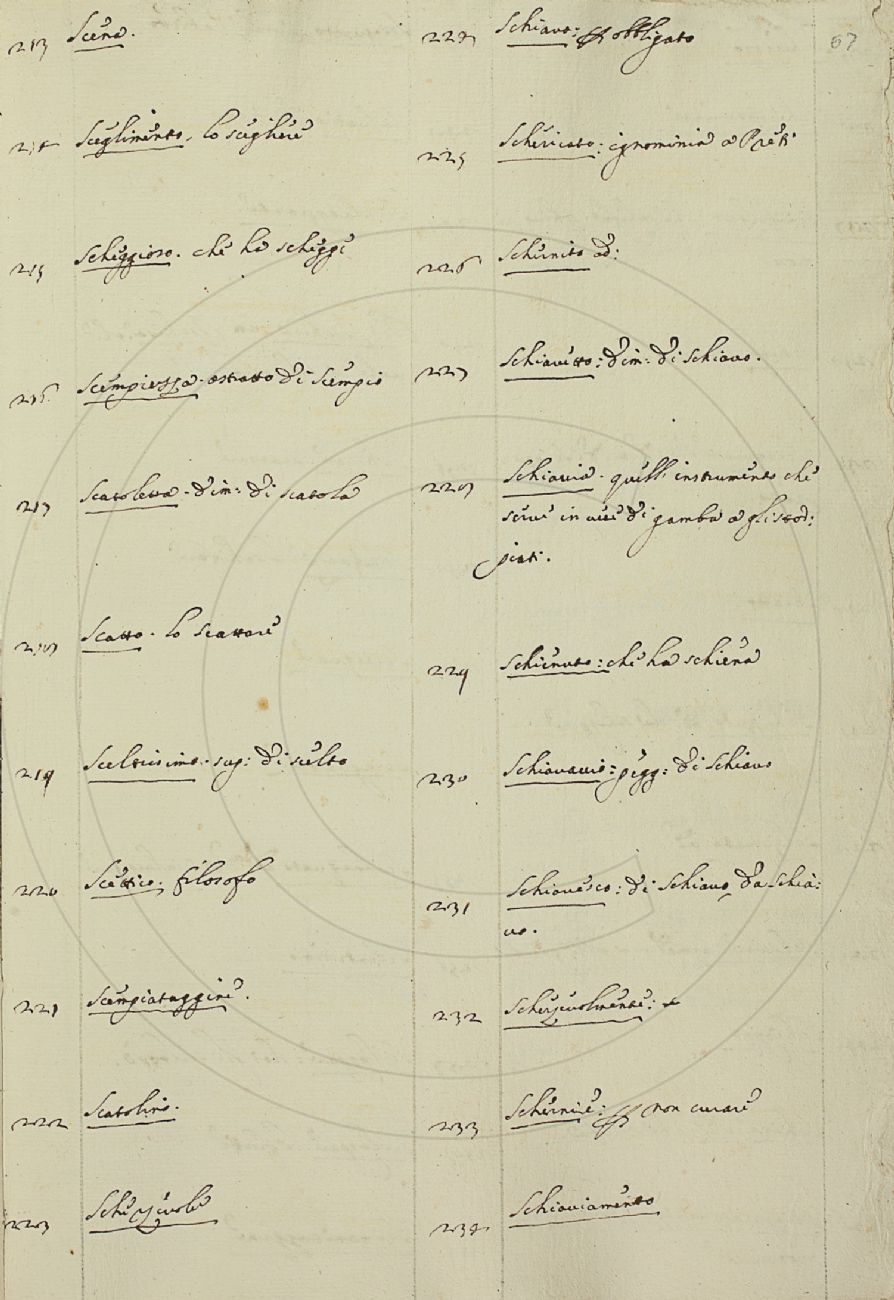 67
213 Scena.
214 Sceglimento. lo scegliere
215 Scheggioso. che ha schegge
216 Scempiezza. astratto di scempio
217 Scatoletta. dim: di scatola
218 Scatto. lo scattare
219 Sceltissimo. sup: di scelto
220 Scettico. filosofo
221 Scempiataggine.
222 Scatolino.
223 Schezevole
224 Schiavo: obbligato
225 Schericato: ignominia a Preti
226 Schernito ad:
227 Schiavetto: dim: di schiavo.
228 Schiavia. quell' instrumento che
serve in vece di gamba a gli stor:
piati.
229 Schienuto: che ha schiena
230 Schiavaccio: pegg: di Schiavo
231 Schiavesco: di Schiavo, da Schia:
vo.
232
233 Schernire: non curare
234 Schiaviamento